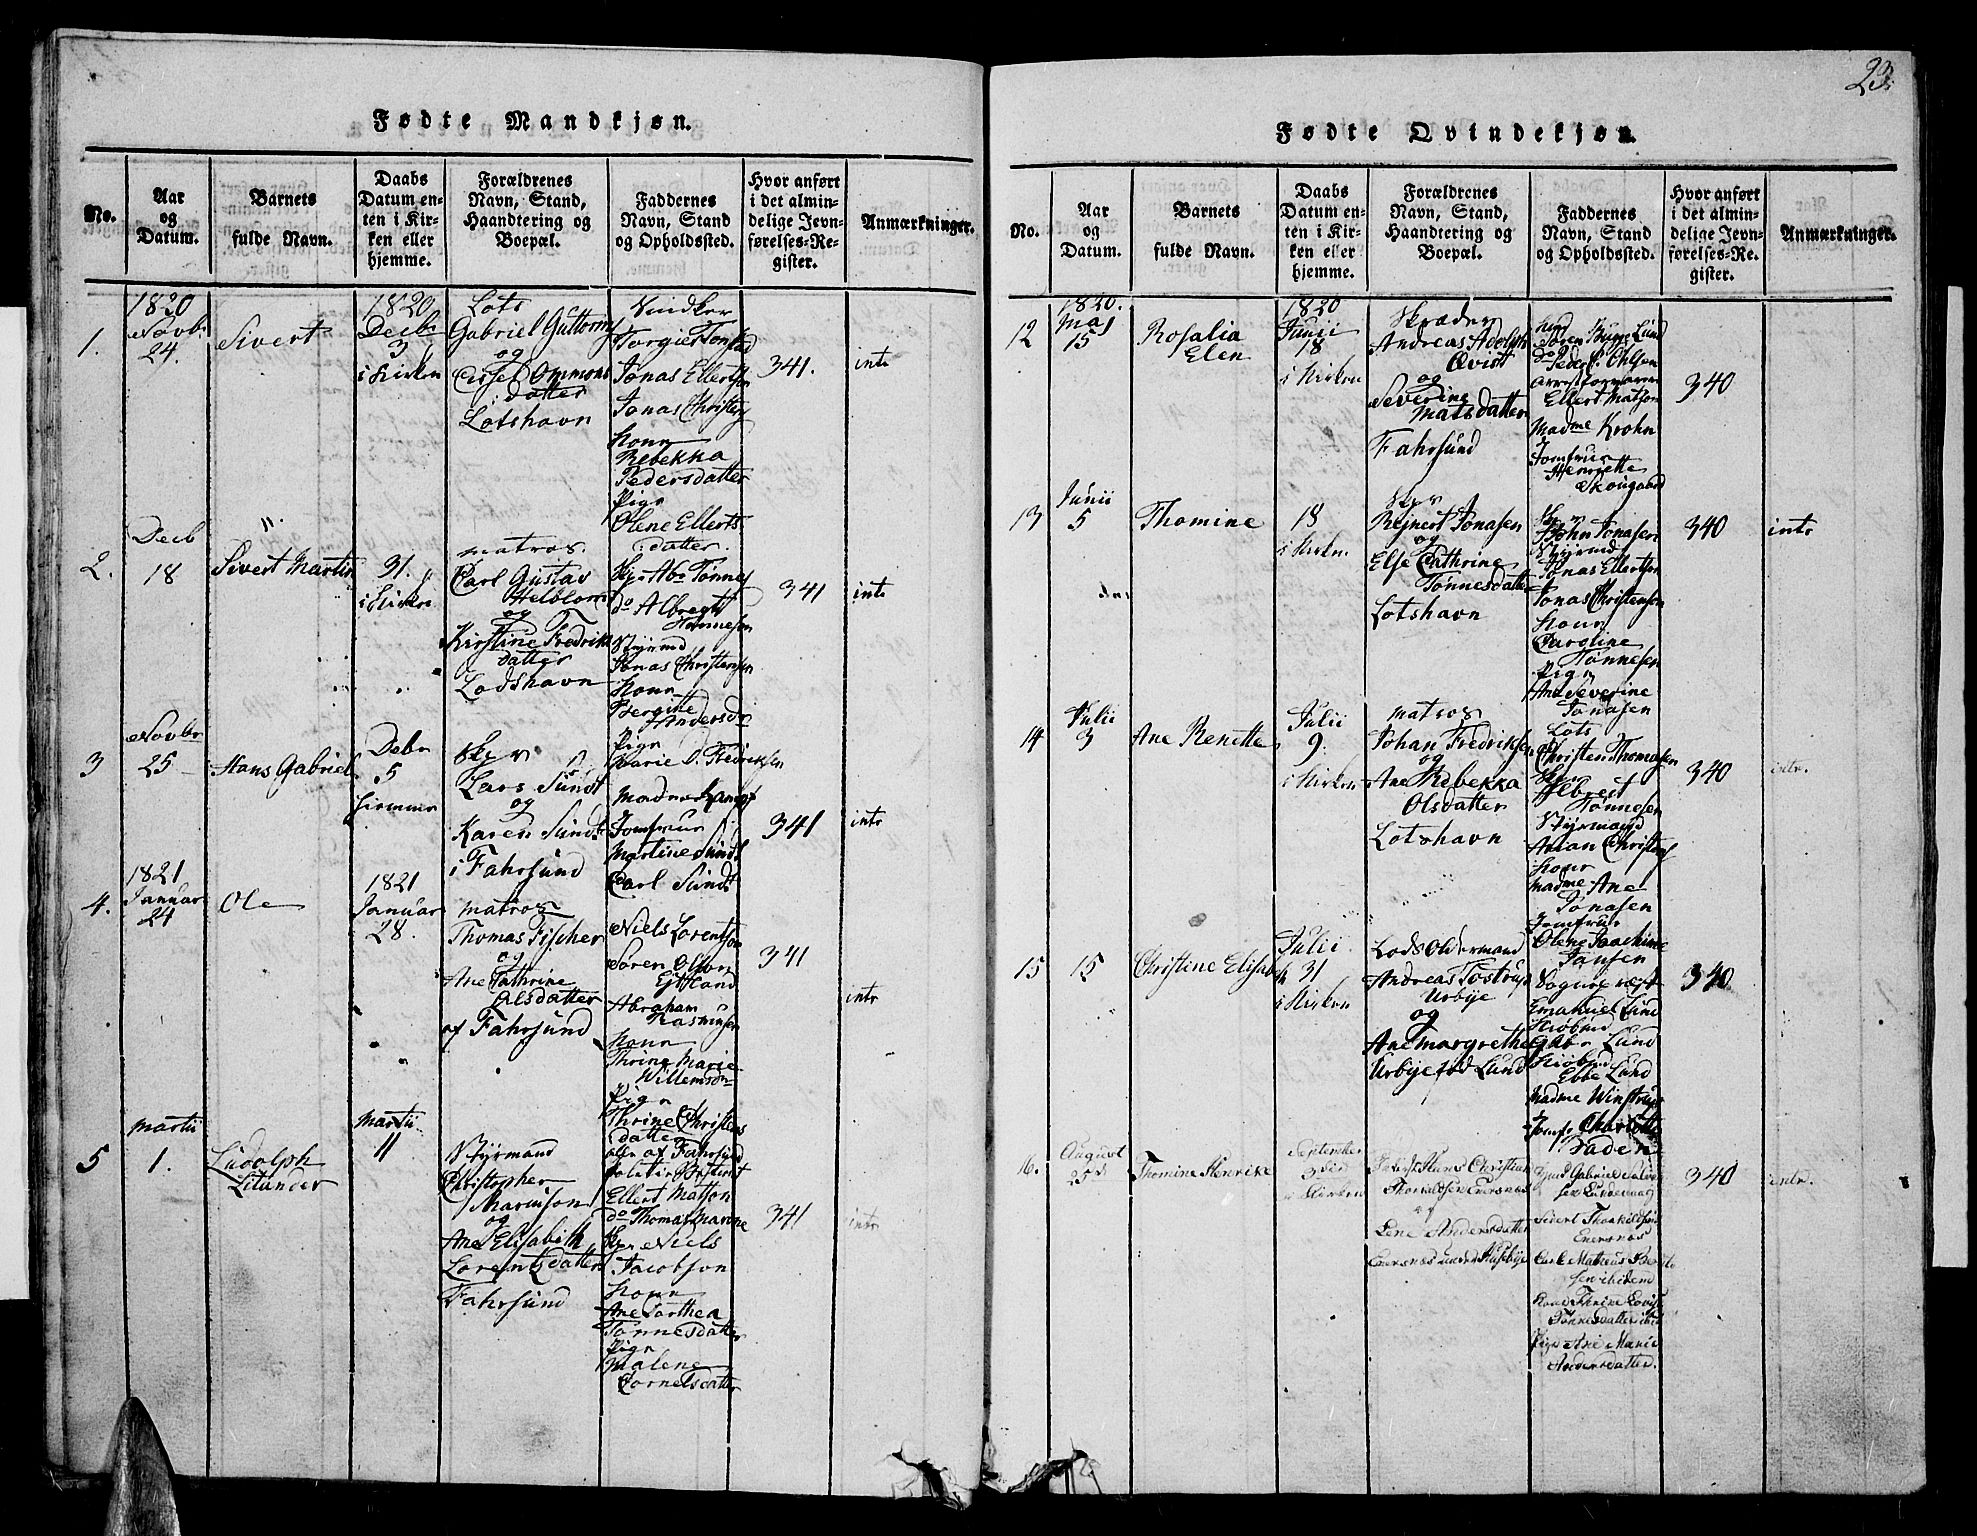 23.
Fødte Mandkjøn.
No.
Aar
og
Datum.
Barnets
fulde Navn.
Daabs
Datum en-
ten i Kir-
ken eller
hjemme.
Forældrenes
Navn, Stand,
Haandtering og
Boepæl.
Faddernes
Navn, Stand
og Opholdssted.
Hvor anført
i det almin-
delige Jevn-
førelses-Re-
gister.
Anmærkninger.
1.
1820
Novbr
24.
Sivert
1820
Decbr
3
i Kirken
Lots
Gabriel Guttorms
og
Cissel Ommons
datter
Lotshavn
Torgies
Jonas Ellertsen
Jonas Christens
Konn
Rebekka
Pedersdatter
Pign
Olene Ellerts
datter.
341.
intr
2.
Decb
18
Sivert Martin
31.
i Kirken
matros
Carl Gustav
Helblom
og
Kirstine Fredriks
datter
Lodshavn
Abr Tønnes
do Albregt
Tønnesen
Styrmd
Jonas Christensen
Konn
Bergine
Andersd
Pign
Marie O. Fredriksen
341
intr
3
Novbr
25
Hans Gabriel
Debr
5
hiemme
Skpr
Lars Sundt
og
Karen Sundt
i Fahrsund
Madme
Jomfrue
Martine Sundt
Carl Sundt
341
intr
4.
1821
Januar
24
Ole
1821
Januar
28.
matros
Thomas Fischer
og
Ane Cathrine
Olsdatter
af Fahrsund
Niels Lorentson
Søren Olson
Abraham
Rasmusen
Konn
Thrine Marie
Willemsdr
Pign
Thrine Christens
datter
alle af Fahrsund
341
intr
5
Martii
1.
Ludolph
Litander
Martii
11
Styrmand
Christopher
og
Ane Elisabith
Lorentzdatter
Fahrsund
Ellert Matson
do Thomas
Niels
Jacobson
Konn
Ane Dorthea
Tønnesdatter
Pign
Malene
Cornelsdatter
341
intr
Fødte Qvindekjøn.
No.
Aar
og
Datum.
Barnets
fulde Navn.
Daabs
Datum en-
ten i Kir-
ken eller
hjemme.
Forældrenes
Navn, Stand,
Haandtering og
Boepæl.
Faddernes
Navn, Stand
og Opholdssted.
Hvor anført
i det almin-
delige Jevn-
førelses-Re-
gister.
Anmærkninger.
12
1820.
Maj
15
Rosalia
Elen
1820
Junii
18
i Kirken
Skræder
Andreas Adolph
Qvist
og
Severine
Matsdatter
Fahrsund
Søren Bugge Lund
do Peder C. Ohlsen
Arrestforvarer
Ellert Matson
Madme Krohn
Jomfrue
Henriette
Skougaard
340
13
Junii
5
Thomine
18
i Kirken
Skpr
Rejnert Jonasen
og
Else Cathrine
Tønnesdatter
Lotshavn
John Jonasen
Styrmd
Jonas Ellertsen
Jonas Christensen
Konn
Caroline
Tønnesen
Pign
Ane Severine
Jonasen
340
intr
14
Julii
3
Ane Renette
Julii
9.
i Kirken
matros
Johan Fredriksen
og
Ane Rebekka
Olsdatter
Lotshavn
Lots
Christen Thomasen
Skpr
Albregt
Tønnesen
Styrmand
Arian Christens
Konn
Madme Ane
Jonasen
Jomfrue
Olene Joachime
Jansen
340
intr.
15
15
Christine Elisabeth
Julii
31
i Kirken
Lods Oldermand
Andreas Tostrup
Urbye
og
Ane Margrethe
Urbye fød Lund
Emanuel Lund
Kiøbmd
Gabr Lund
Kiøbmd
Ebbe Lund
Madme Winstrup
Jomfr Charlotte
Baden
340
16.
August
25
Thomine Henrike
September
3die
i Kirken
Hans Christian
Thorkildsen Enersnæs
og
Lene Andersdatter
Enersnæs under Husebye
Gabriel
sen Lundevaag
Sivert Thorkildsen
Enersnæs
Carl Mathias Bernt
sen ibidem
Kone Thrine Lovise
Tønnesdatter ibid
Pige Ane Marie
Andersdatter.
340
intr.